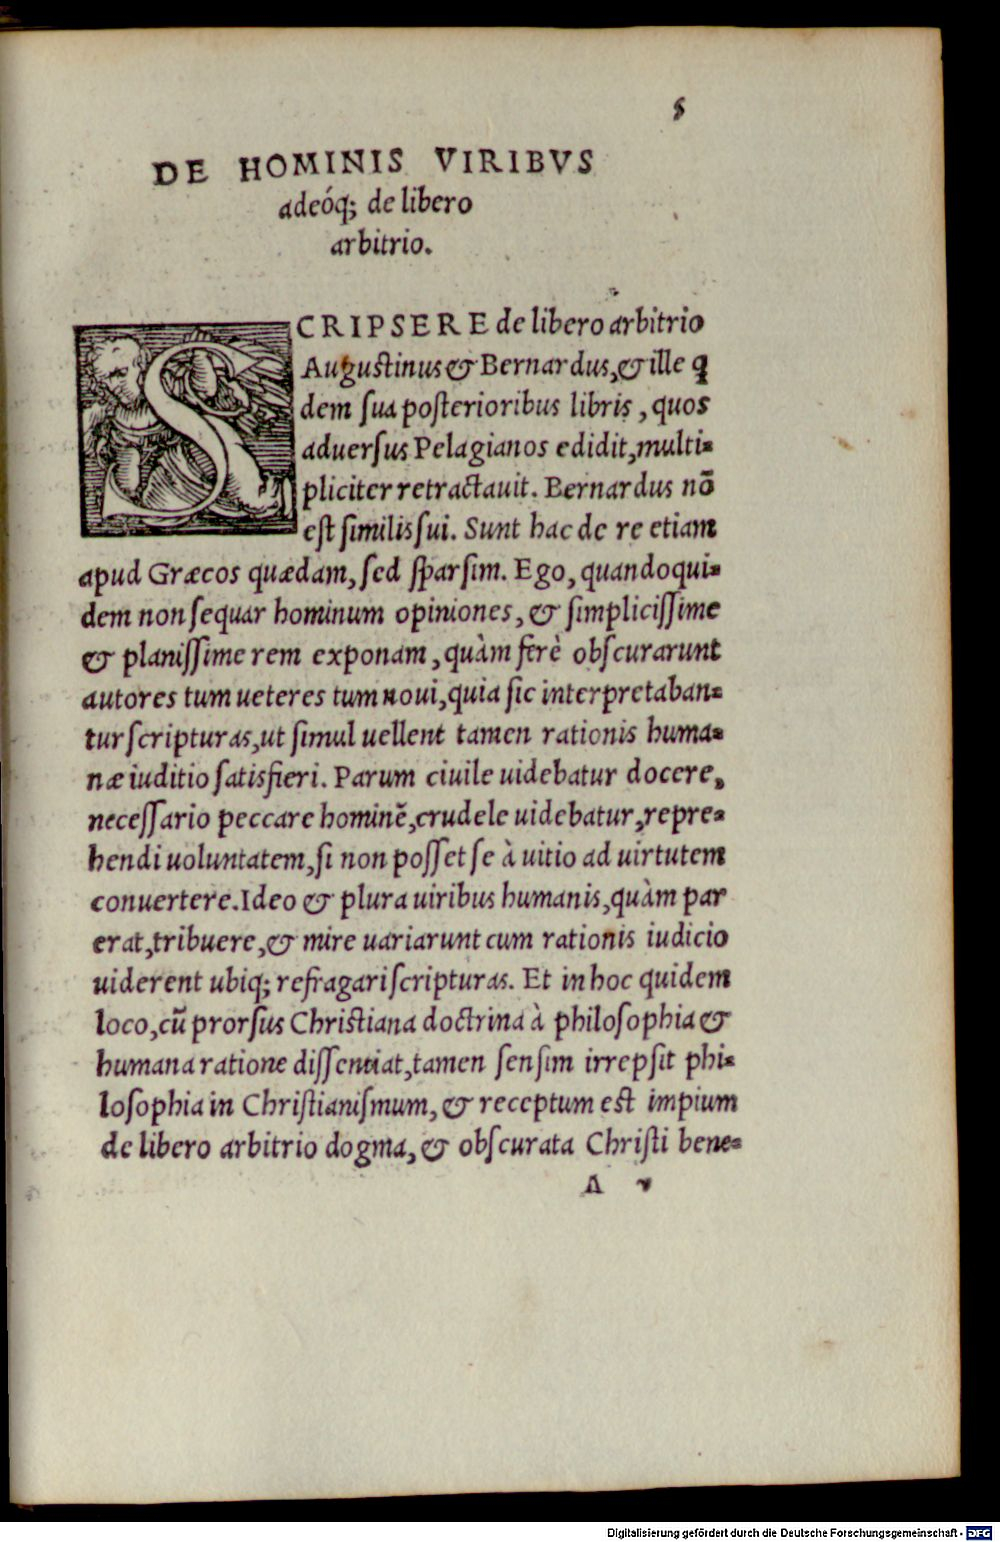 5
DE HOMINIS VIRIBVS
adeóq; de libero
arbitrio.
SCRIPSERE de libero arbitrio
Augustinus & Bernardus, & ille q
dem sua posterioribus libris, quos
aduersus Pelagianos edidit, multi-
pliciter retractauit. Bernardus nō
est similis sui. Sunt hac de re etiam
apud Græcos quædam, sed sparsim. Ego, quandoqui-
dem non sequar hominum opiniones, & simplicissime
& planissime rem exponam, quàm ferè obscurarunt
autores tum ueteres tum noui, quia sic interpretaban-
tur scripturas, ut simul uellent tamen rationis huma-
næ iuditio satisfieri. Parum ciuile uidebatur docere,
necessario peccare hominē, crudele uidebatur, repre-
hendi uoluntatem, si non posset se à uitio ad uirtutem
conuertere. Ideo & plura uiribus humanis, quàm par
erat, tribuere, & mire uariarunt cum rationis iudicio
uiderent ubiq; refragari scripturas. Et in hoc quidem
loco, cū prorsus Christiana doctrina à philosophia &
humana ratione dissentiat, tamen sensim irrepsit phi-
losophia in Christianismum, & receptum est impium
de libero arbitrio dogma, & obscurata Christi bene-
A v
Digitalisierung gefördert durch die Deutsche Forschungsgemeinschaft - DFG